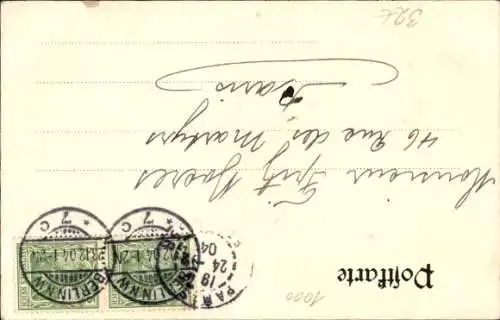 Postkarte
Monsieur Fritz
46 Rue des Martyrs
Paris
BERLIN N.W.
* 7 c
BERLIN N.W.
* 7 c
PARIS
18
24
04
1000